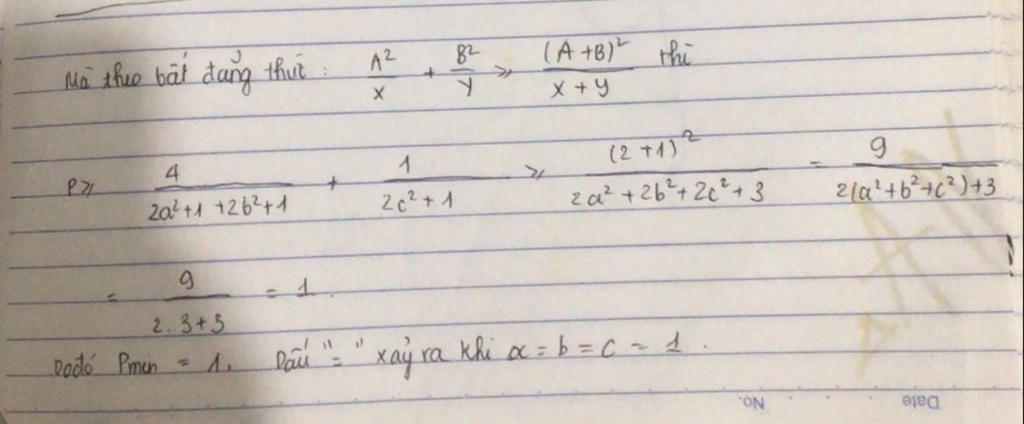 Mà theo bất đẳng thức : A²/x + B²/y ≥ (A+B)²/(x+y) thì
P ≥ 4/(2a²+1+2b²+1) + 1/(2c²+1) ≥ (2+1)²/(2a²+2b²+2c²+3) = 9/(2(a²+b²+c²)+3)
= 9/(2.3+3) = 1.
Do đó Pmin = 1. Dấu "=" xảy ra khi a = b = c = 1.
Date No.